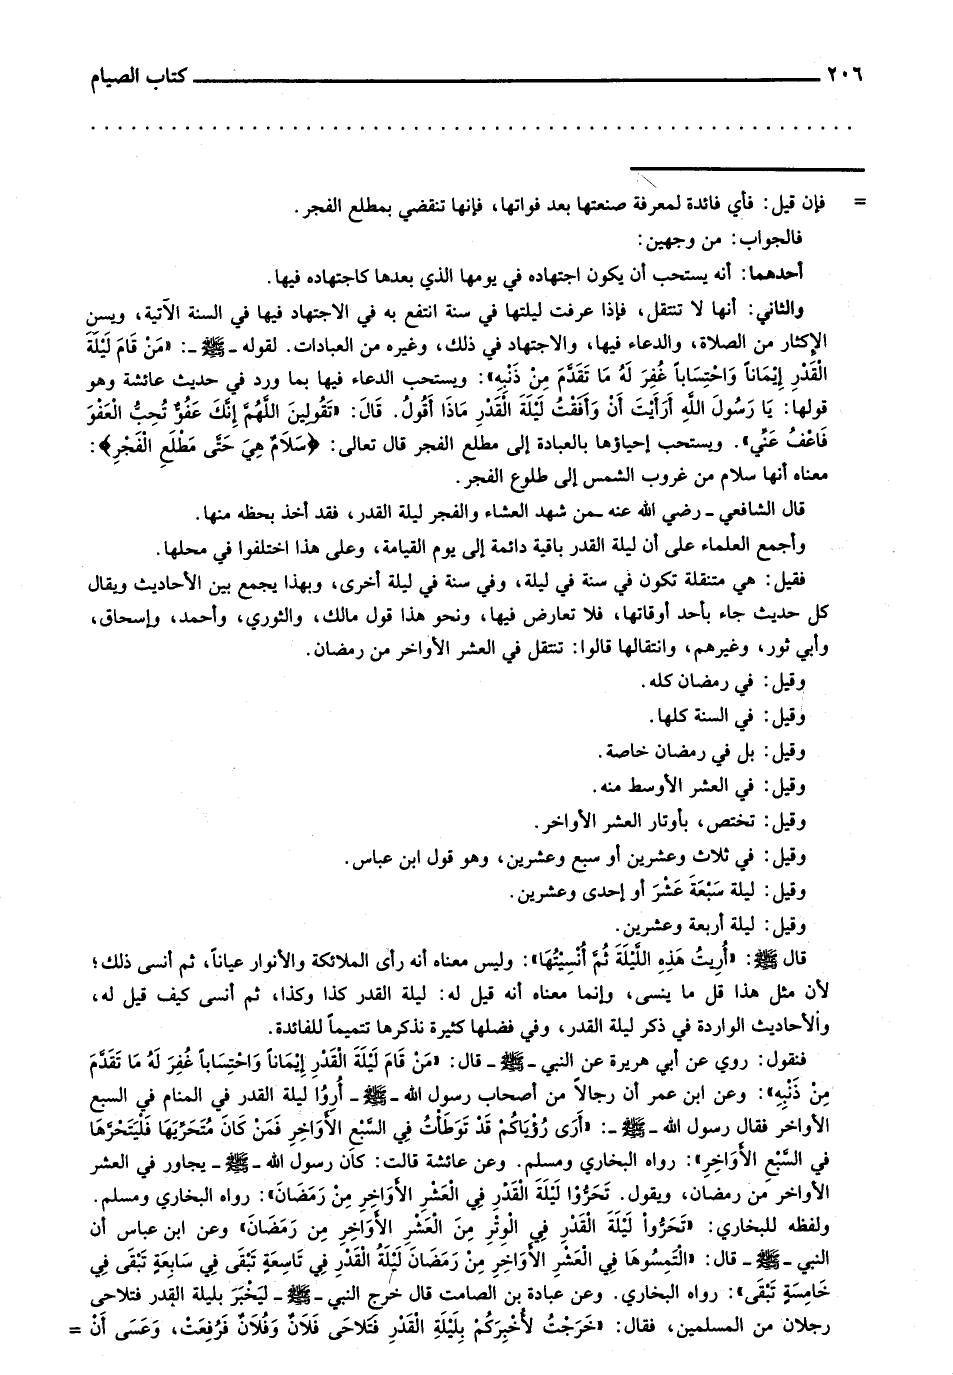 ٢٠٦ كتاب الصيام
= فإن قيل: فأي فائدة لمعرفة صنعتها بعد فواتها، فإنها تنقضي بمطلع الفجر.
فالجواب: من وجهين:
أحدهما: أنه يستحب أن يكون اجتهاده في يومها الذي بعدها كاجتهاده فيها.
والثاني: أنها لا تنتقل، فإذا عرفت ليلتها في سنة انتفع به في الاجتهاد فيها في السنة الآتية، ويسن
الإكثار من الصلاة، والدعاء فيها، والاجتهاد في ذلك، وغيره من العبادات. لقوله ـ ﷺ ـ: «مَنْ قَامَ لَيْلَةَ
الْقَدْرِ إِيْمَاناً وَاحْتِسَاباً غُفِرَ لَهُ مَا تَقَدَّمَ مِنْ ذَنْبِهِ»: ويستحب الدعاء فيها بما ورد في حديث عائشة وهو
قولها: يَا رَسُولَ اللَّهِ أَرَأَيْتَ أَنْ وَافَقْتُ لَيْلَةَ الْقَدْرِ مَاذَا أَقُولُ. قَالَ: «تَقُولِينَ اللَّهُمَّ إِنَّكَ عَفُوٌّ تُحِبُّ الْعَفْوَ
فَاعْفُ عَنِّي». ويستحب إحياؤها بالعبادة إلى مطلع الفجر قال تعالى: ﴿سَلَامٌ هِيَ حَتَّى مَطْلَعِ الْفَجْرِ﴾:
معناه أنها سلام من غروب الشمس إلى طلوع الفجر.
قال الشافعي ـ رضي الله عنه ـمن شهد العشاء والفجر ليلة القدر، فقد أخذ بحظه منها.
وأجمع العلماء على أن ليلة القدر باقية دائمة إلى يوم القيامة، وعلى هذا اختلفوا في محلها.
فقيل: هي متنقلة تكون في سنة في ليلة، وفي سنة في ليلة أخرى، وبهذا يجمع بين الأحاديث ويقال
كل حديث جاء بأحد أوقاتها، فلا تعارض فيها، ونحو هذا قول مالك، والثوري، وأحمد، وإسحاق،
وأبي ثور، وغيرهم، وانتقالها قالوا: تنتقل في العشر الأواخر من رمضان.
وقيل: في رمضان كله.
وقيل: في السنة كلها.
وقيل: بل في رمضان خاصة.
وقيل: في العشر الأوسط منه.
وقيل: تختص، بأوتار العشر الأواخر.
وقيل: في ثلاث وعشرين أو سبع وعشرين، وهو قول ابن عباس.
وقيل: ليلة سَبْعَةَ عَشْرَ أو إحدى وعشرين.
وقيل: ليلة أربعة وعشرين.
قال ﷺ: «أُرِيتُ هَذِهِ اللَّيْلَةَ ثُمَّ أُنْسِيْتُهَا»: وليس معناه أنه رأى الملائكة والأنوار عياناً، ثم أنسى ذلك؛
لأن مثل هذا قل ما ينسى، وإنما معناه أنه قيل له: ليلة القدر كذا وكذا، ثم أنسى كيف قيل له،
والأحاديث الواردة في ذكر ليلة القدر، وفي فضلها كثيرة نذكرها تتميماً للفائدة.
فنقول: روي عن أبي هريرة عن النبي ـ ﷺ ـ قال: «مَنْ قَامَ لَيْلَةَ الْقَدْرِ إِيْمَاناً وَاحْتِسَاباً غُفِرَ لَهُ مَا تَقَدَّمَ
مِنْ ذَنْبِهِ»: وعن ابن عمر أن رجالاً من أصحاب رسول الله ـ ﷺ ـ أُروُا ليلة القدر في المنام في السبع
الأواخر فقال رسول الله ـ ﷺ ـ: «أَرَى رُؤْيَاكُمْ قَدْ تَوَطَأَتْ فِي السَّبْعِ الأَوَاخِرِ فَمَنْ كَانَ مُتَحَرِّيَهَا فَلْيَتَحْرَّهَا
فِي السَّبْعِ الأَوَاخِرِ»: رواه البخاري ومسلم. وعن عائشة قالت: كان رسول الله ـ ﷺ ـ يجاور في العشر
الأواخر من رمضان، ويقول. تَحَرُّوْا لَيْلَةَ الْقَدْرِ فِي الْعَشْرِ الأَوَاخِرِ مِنْ رَمَضَانَ»: رواه البخاري ومسلم.
ولفظه للبخاري: «تَحَرُّواْ لَيْلَةَ الْقَدْرِ فِي الْوِتْرِ مِنَ الْعَشْرِ الأَوَاخِرِ مِن رَمَضَانَ» وعن ابن عباس أن
النبي ـ ﷺ ـ قال: «الْتَمِسُوهَا فِي الْعَشْرِ الأَوَاخِرِ مِنْ رَمَضَانَ لَيْلَةُ الْقَدْرِ فِي تَاسِعَةٍ تَبْقَى فِي سَابِعَةٍ تَبْقَى فِي
خَامِسَةٍ تَبْقَى»: رواه البخاري. وعن عبادة بن الصامت قال خرج النبي ـ ﷺ ـ ليَخْبَرَ بليلة القدر فتلاحى
رجلان من المسلمين، فقال: «خَرَجْتُ لأُخْبِرَكُمْ بِلَيْلَةِ الْقَدْرِ فَتَلاَحَى فَلاَنٌ وَفُلاَنٌ فَرُفِعَتْ، وَعَسَى أَنْ =